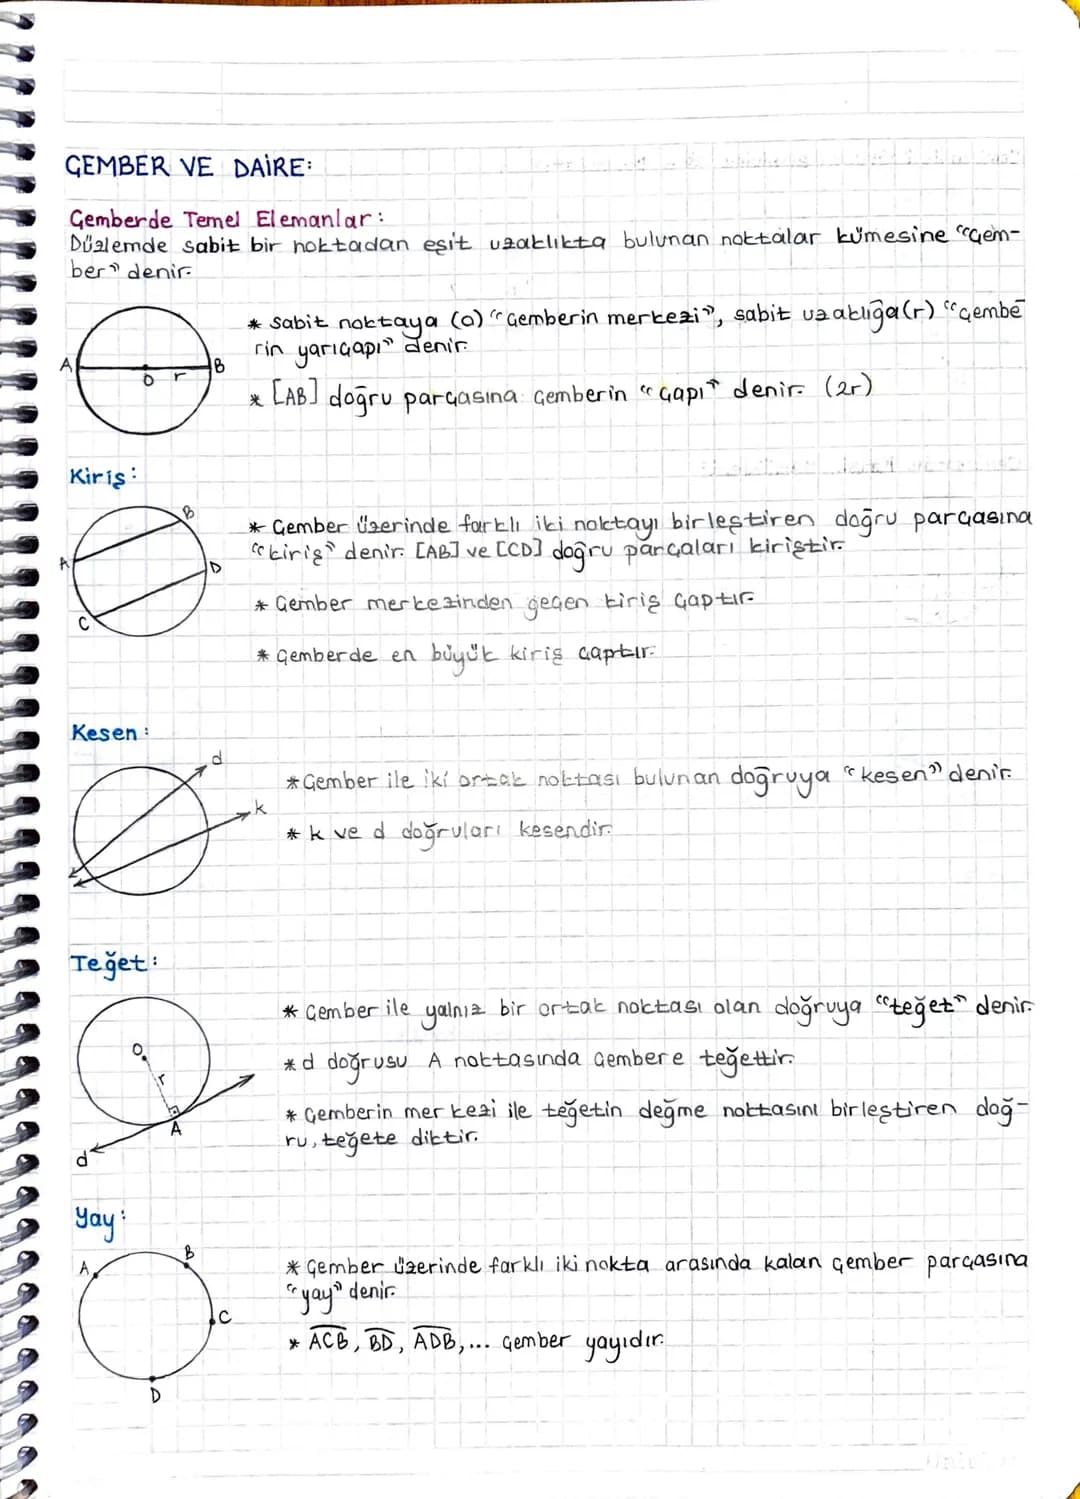 ÇEMBER VE DAİRE:
Çemberde Temel Elemanlar:
Düzlemde sabit bir noktadan eşit uzaklıkta bulunan noktalar kümesine "çem-
ber" denir.
* Sabit noktaya (O) "çemberin merkezi", sabit uzaklığa (r) "çembe
rin yarıçapı" denir.
A O r B
* [AB] doğru parçasına çemberin "çapı" denir. (2r)
Kiriş:
B
* Çember üzerinde farklı iki noktayı birleştiren doğru parçasına
"kiriş" denir. [AB] ve [CD] doğru parçaları kiriştir.
A D
* Çember merkezinden geçen kiriş çaptır.
C
* Çemberde en büyük kiriş çaptır.
Kesen:
d
* Çember ile iki ortak noktası bulunan doğruya "kesen" denir.
k
* k ve d doğruları kesendir.
Teğet:
* Çember ile yalnız bir ortak noktası olan doğruya "teğet" denir.
O
* d doğrusu A noktasında çembere teğettir.
r
* Çemberin merkezi ile teğetin değme noktasını birleştiren doğ-
A
ru, teğete diktir.
d
Yay:
B
* Çember üzerinde farklı iki nokta arasında kalan çember parçasına
A
"yay" denir.
C
* ACB, BD, ADB, ... çember yayıdır.
D